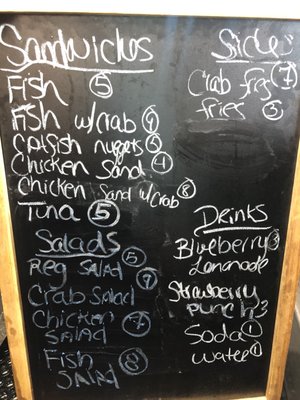 Sandwiches
Fish 5
Fish w/crab 9
Catfish nuggets 5
Chicken Sand 4
Chicken Sand w/crab 8
Tuna 5
Salads
Reg Salad 5
Crab Salad 9
Chicken Salad 7
Fish Salad 8
Sides
Crab fries 7
fries 3
Drinks
Blueberry 3
Lemonade
Strawberry
Punch 3
Soda 1
Water 1